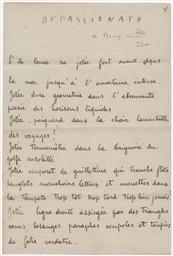 APPASSIONATO
S'il lance sa jetée fort avant dans
la mer jusqu'à l'amertume intense.
Jetée dure géométrie dans l'
poésie des horizons liquides
Jetée, poignard dans la chair lamentable
des voyages!
Jetée Termomètre dans la baignoire du
golfe
Jetée couperet de guillotine qui tranche flots
sanglots mouchoirs lettres et mouettes dans
la Tempête Trop tôt trop tard Trop loin jamais!
Jetée ligne droite assiégée par des Triangles
cones losanges paraphes coupoles et toupies
de folie verdatre.